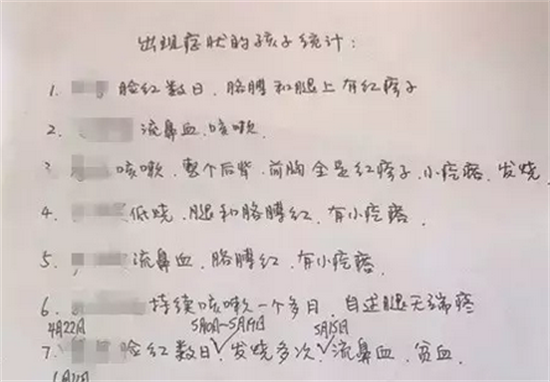 出现症状的孩子统计：
1. 脸红数日、胳膊和腿上有红痞子
2. 流鼻血、咳嗽.
3. 咳嗽、整个后背、前胸全是红痞子、小疙瘩、发烧
4. 低烧、腿和胳膊红、有小疙瘩.
5. 流鼻血、胳膊红、有小疙瘩.
6. 持续咳嗽一个多月、自述腿无端疼
4月22日 5月10日~5月14日 5月15日
7. 脸红数日、发烧多次、流鼻血、贫血.